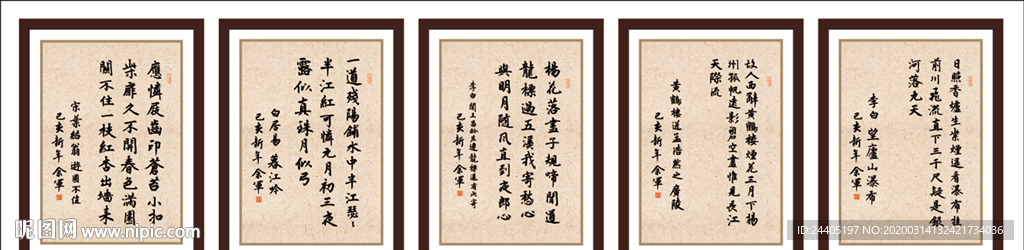 應憐屐齒印蒼苔小扣
柴扉久不開春色滿園
關不住一枝紅杏出墻来
宋葉紹翁 遊園不值
己亥新年 余軍
一道殘陽鋪水中半江瑟々
半江紅可憐九月初三夜
露似真珠月似弓
白居易 暮江吟
己亥新年 余軍
楊花落盡子規啼聞道
龍標過五溪我寄愁心
與明月随風直到夜郎心
李白 聞王昌齡左遷龍標遥有此寄
己亥新年 余軍
故人西辭黄鶴樓煙花三月下揚
州孤帆遠影碧空盡惟見長江
天際流
黄鶴樓送孟浩然之廣陵
己亥新年 余軍
日照香爐生紫煙遥看瀑布挂
前川飛流直下三千尺疑是銀
河落九天
李白 望廬山瀑布
己亥新年 余軍
昵图网 www.nipic.com
ID:24405197 NO:20200314132421734036